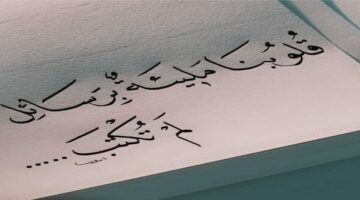 قلوبنا مليئه برسائل
لم تكتب .....